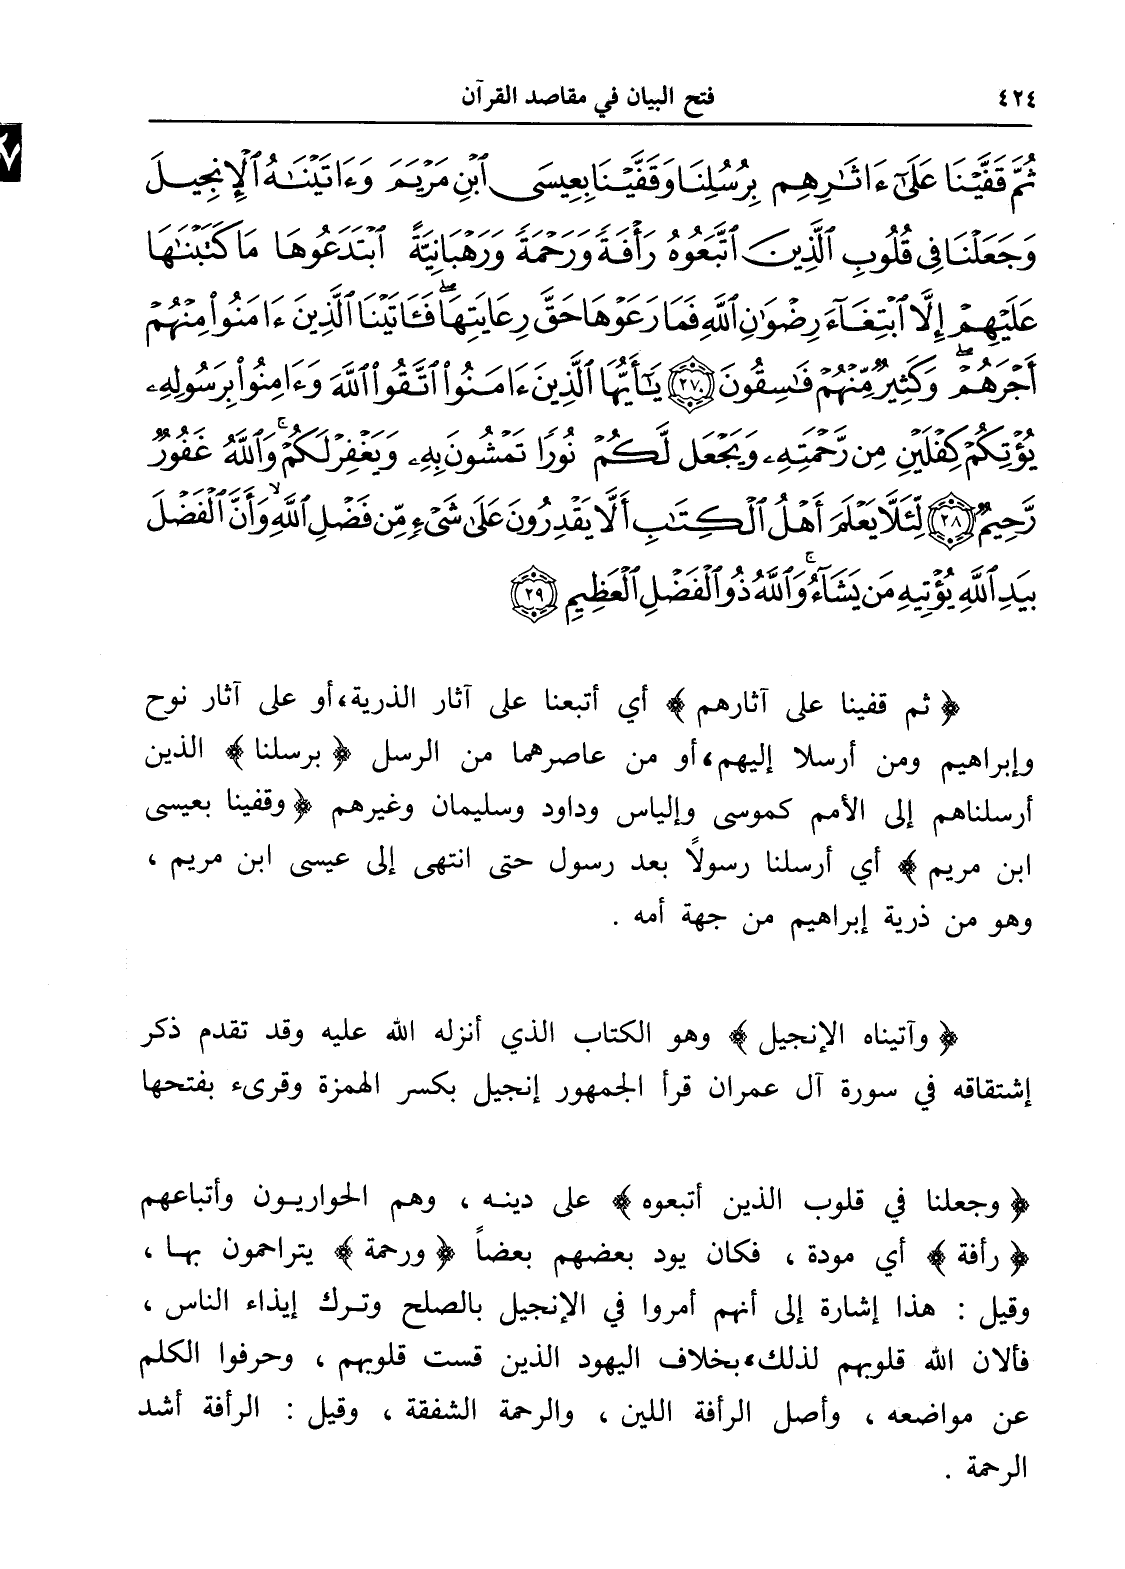 ٤٢٤ فتح البيان في مقاصد القرآن
ثُمَّ قَفَّيْنَا عَلَىٰٓ ءَاثَٰرِهِم بِرُسُلِنَا وَقَفَّيْنَا بِعِيسَى ٱبْنِ مَرْيَمَ وَءَاتَيْنَٰهُ ٱلْإِنجِيلَ
وَجَعَلْنَا فِى قُلُوبِ ٱلَّذِينَ ٱتَّبَعُوهُ رَأْفَةً وَرَحْمَةً وَرَهْبَانِيَّةً ٱبْتَدَعُوهَا مَا كَتَبْنَٰهَا
عَلَيْهِمْ إِلَّا ٱبْتِغَآءَ رِضْوَٰنِ ٱللَّهِ فَمَا رَعَوْهَا حَقَّ رِعَايَتِهَا ۖ فَـَٔاتَيْنَا ٱلَّذِينَ ءَامَنُوا۟ مِنْهُمْ
أَجْرَهُمْ ۖ وَكَثِيرٌ مِّنْهُمْ فَٰسِقُونَ ٢٧ يَٰٓأَيُّهَا ٱلَّذِينَ ءَامَنُوا۟ ٱتَّقُوا۟ ٱللَّهَ وَءَامِنُوا۟ بِرَسُولِهِۦ
يُؤْتِكُمْ كِفْلَيْنِ مِن رَّحْمَتِهِۦ وَيَجْعَل لَّكُمْ نُورًا تَمْشُونَ بِهِۦ وَيَغْفِرْ لَكُمْ ۚ وَٱللَّهُ غَفُورٌ
رَّحِيمٌ ٢٨ لِّئَلَّا يَعْلَمَ أَهْلُ ٱلْكِتَٰبِ أَلَّا يَقْدِرُونَ عَلَىٰ شَىْءٍ مِّن فَضْلِ ٱللَّهِ ۙ وَأَنَّ ٱلْفَضْلَ
بِيَدِ ٱللَّهِ يُؤْتِيهِ مَن يَشَآءُ ۚ وَٱللَّهُ ذُو ٱلْفَضْلِ ٱلْعَظِيمِ ٢٩
﴿ ثم قفينا على آثارهم ﴾ أي أتبعنا على آثار الذرية، أو على آثار نوح
وإبراهيم ومن أرسلا إليهم، أو من عاصرهما من الرسل ﴿ برسلنا ﴾ الذين
أرسلناهم إلى الأمم كموسى وإلياس وداود وسليمان وغيرهم ﴿ وقفينا بعيسى
ابن مريم ﴾ أي أرسلنا رسولاً بعد رسول حتى انتهى إلى عيسى ابن مريم ،
وهو من ذرية إبراهيم من جهة أمه .
﴿ وآتيناه الإنجيل ﴾ وهو الكتاب الذي أنزله الله عليه وقد تقدم ذكر
إشتقاقه في سورة آل عمران قرأ الجمهور إنجيل بكسر الهمزة وقرىء بفتحها
﴿ وجعلنا في قلوب الذين أتبعوه ﴾ على دينه ، وهم الحواريون وأتباعهم
﴿ رأفة ﴾ أي مودة ، فكان يود بعضهم بعضاً ﴿ ورحمة ﴾ يتراحمون بها ،
وقيل : هذا إشارة إلى أنهم أمروا في الإنجيل بالصلح وترك إيذاء الناس ،
فألان الله قلوبهم لذلك، بخلاف اليهود الذين قست قلوبهم ، وحرفوا الكلم
عن مواضعه ، وأصل الرأفة اللين ، والرحمة الشفقة ، وقيل : الرأفة أشد
الرحمة .